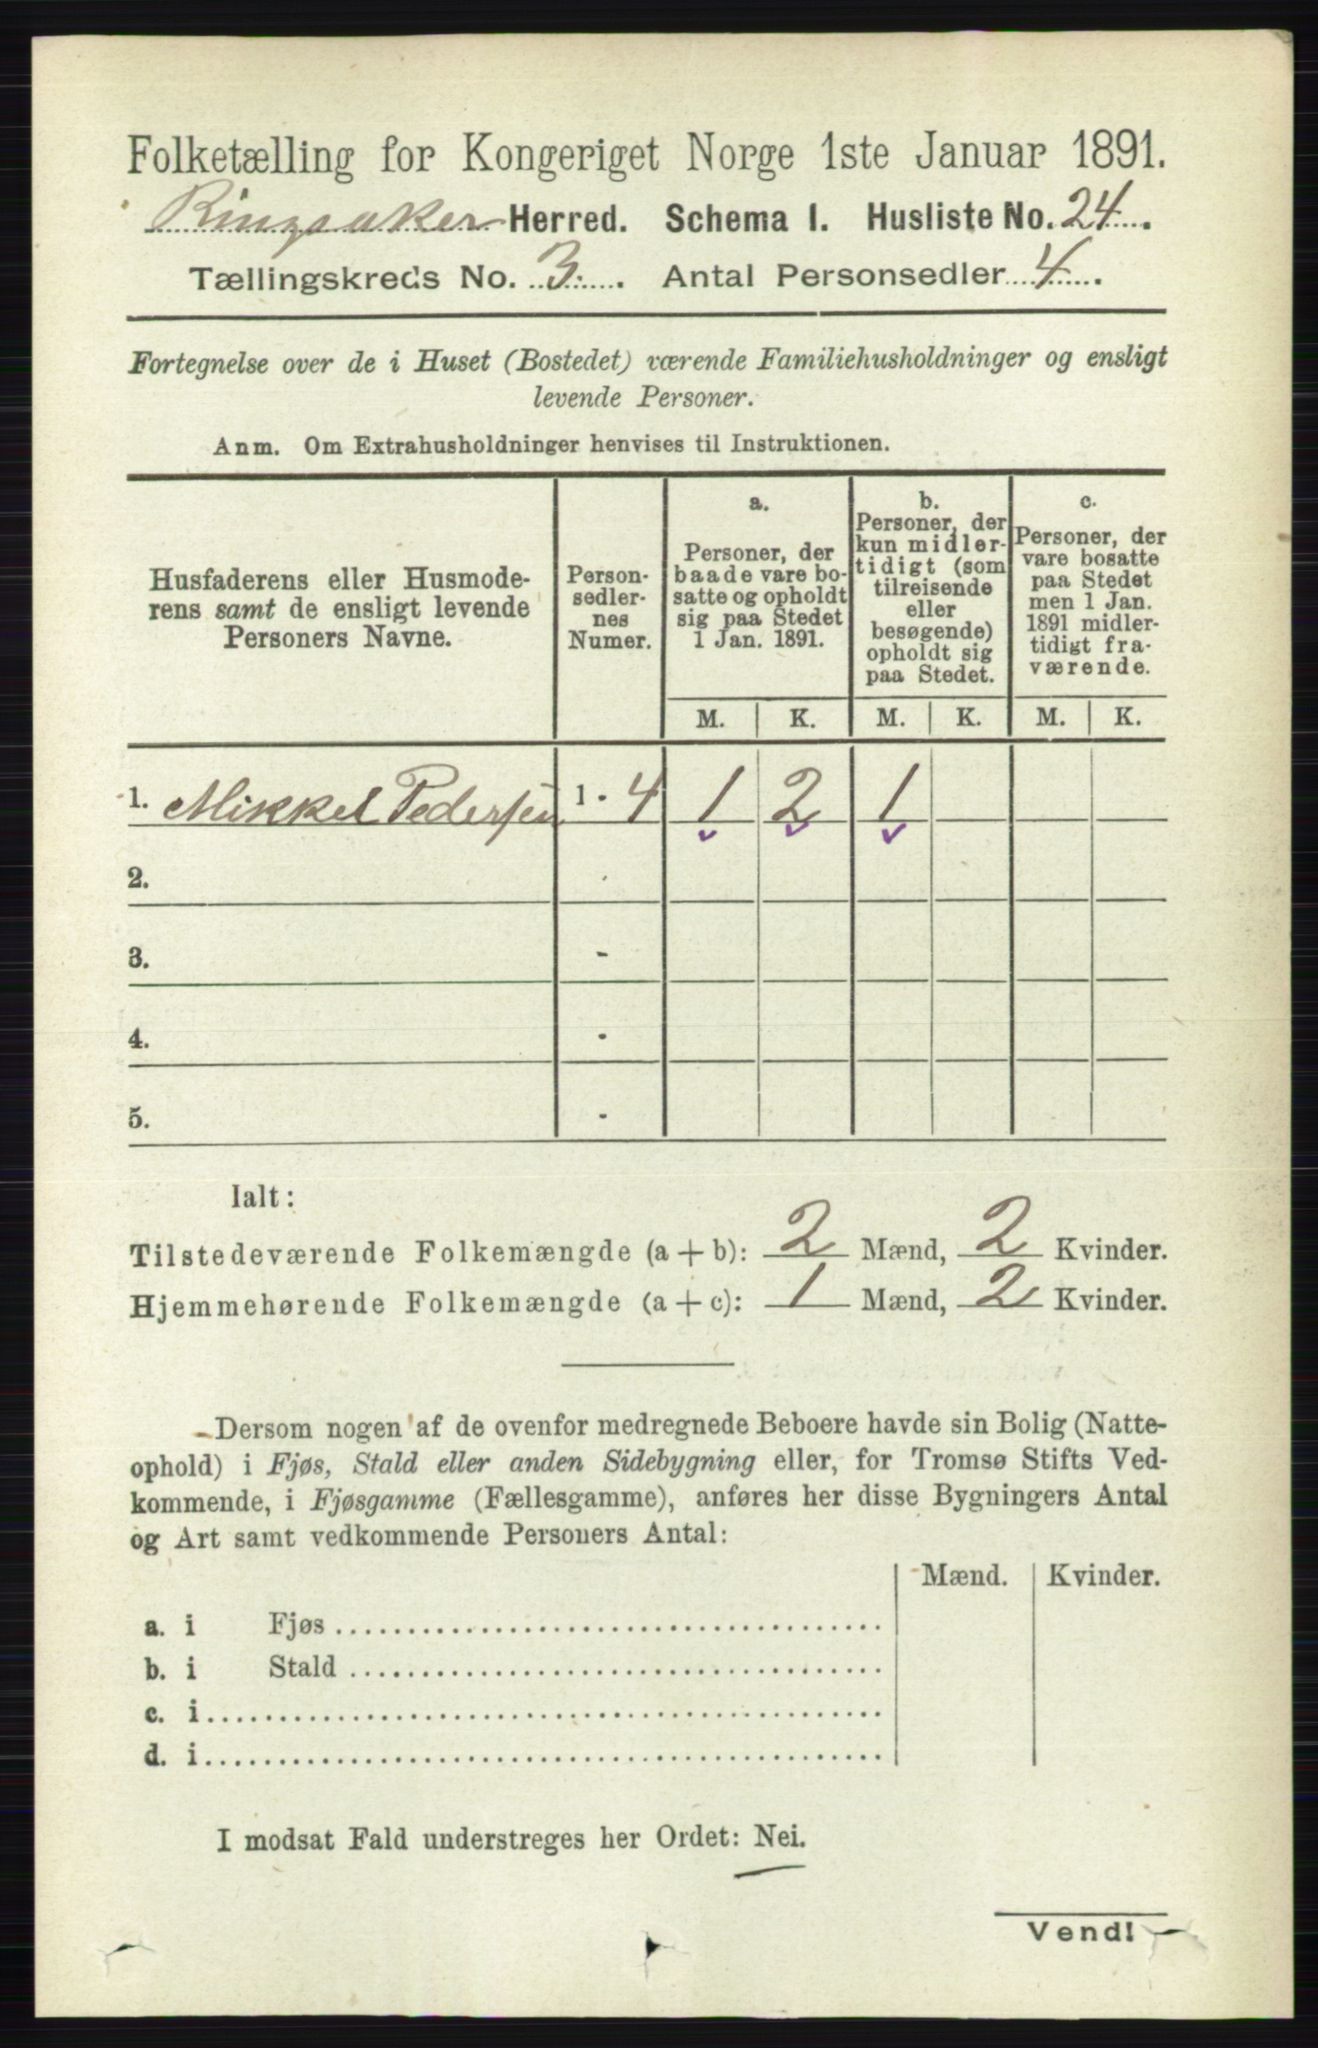 Folketælling for Kongeriget Norge 1ste Januar 1891.
Ringsaker Herred. Schema I. Husliste No. 24.
Tællingskreds No. 3. Antal Personsedler 4.
Fortegnelse over de i Huset (Bostedet) værende Familiehusholdninger og ensligt
levende Personer.
Anm. Om Extrahusholdninger henvises til Instruktionen.
Husfaderens eller Husmode-
rens samt de ensligt levende
Personers Navne.
Person-
sedler-
nes
Numer.
a.
Personer, der
baade vare bo-
satte og opholdt
sig paa Stedet
1 Jan. 1891.
b.
Personer, der
kun midler-
tidigt (som
tilreisende
eller
besøgende)
opholdt sig
paa Stedet.
c.
Personer, der
vare bosatte
paa Stedet
men 1 Jan.
1891 midler-
tidigt fra-
værende.
M. K. M. K. M. K.
1. Mikkel Pedersen 1 - 4 1 2 1
2. -
3. -
4. -
5. -
Ialt:
Tilstedeværende Folkemængde (a + b): 2 Mænd, 2 Kvinder.
Hjemmehørende Folkemængde (a + c): 1 Mænd, 2 Kvinder.
Dersom nogen af de ovenfor medregnede Beboere havde sin Bolig (Natte-
ophold) i Fjøs, Stald eller anden Sidebygning eller, for Tromsø Stifts Ved-
kommende, i Fjøsgamme (Fællesgamme), anføres her disse Bygningers Antal
og Art samt vedkommende Personers Antal:
Mænd. Kvinder.
a. i Fjøs
b. i Stald
c. i
d. i
I modsat Fald understreges her Ordet: Nei.
Vend!